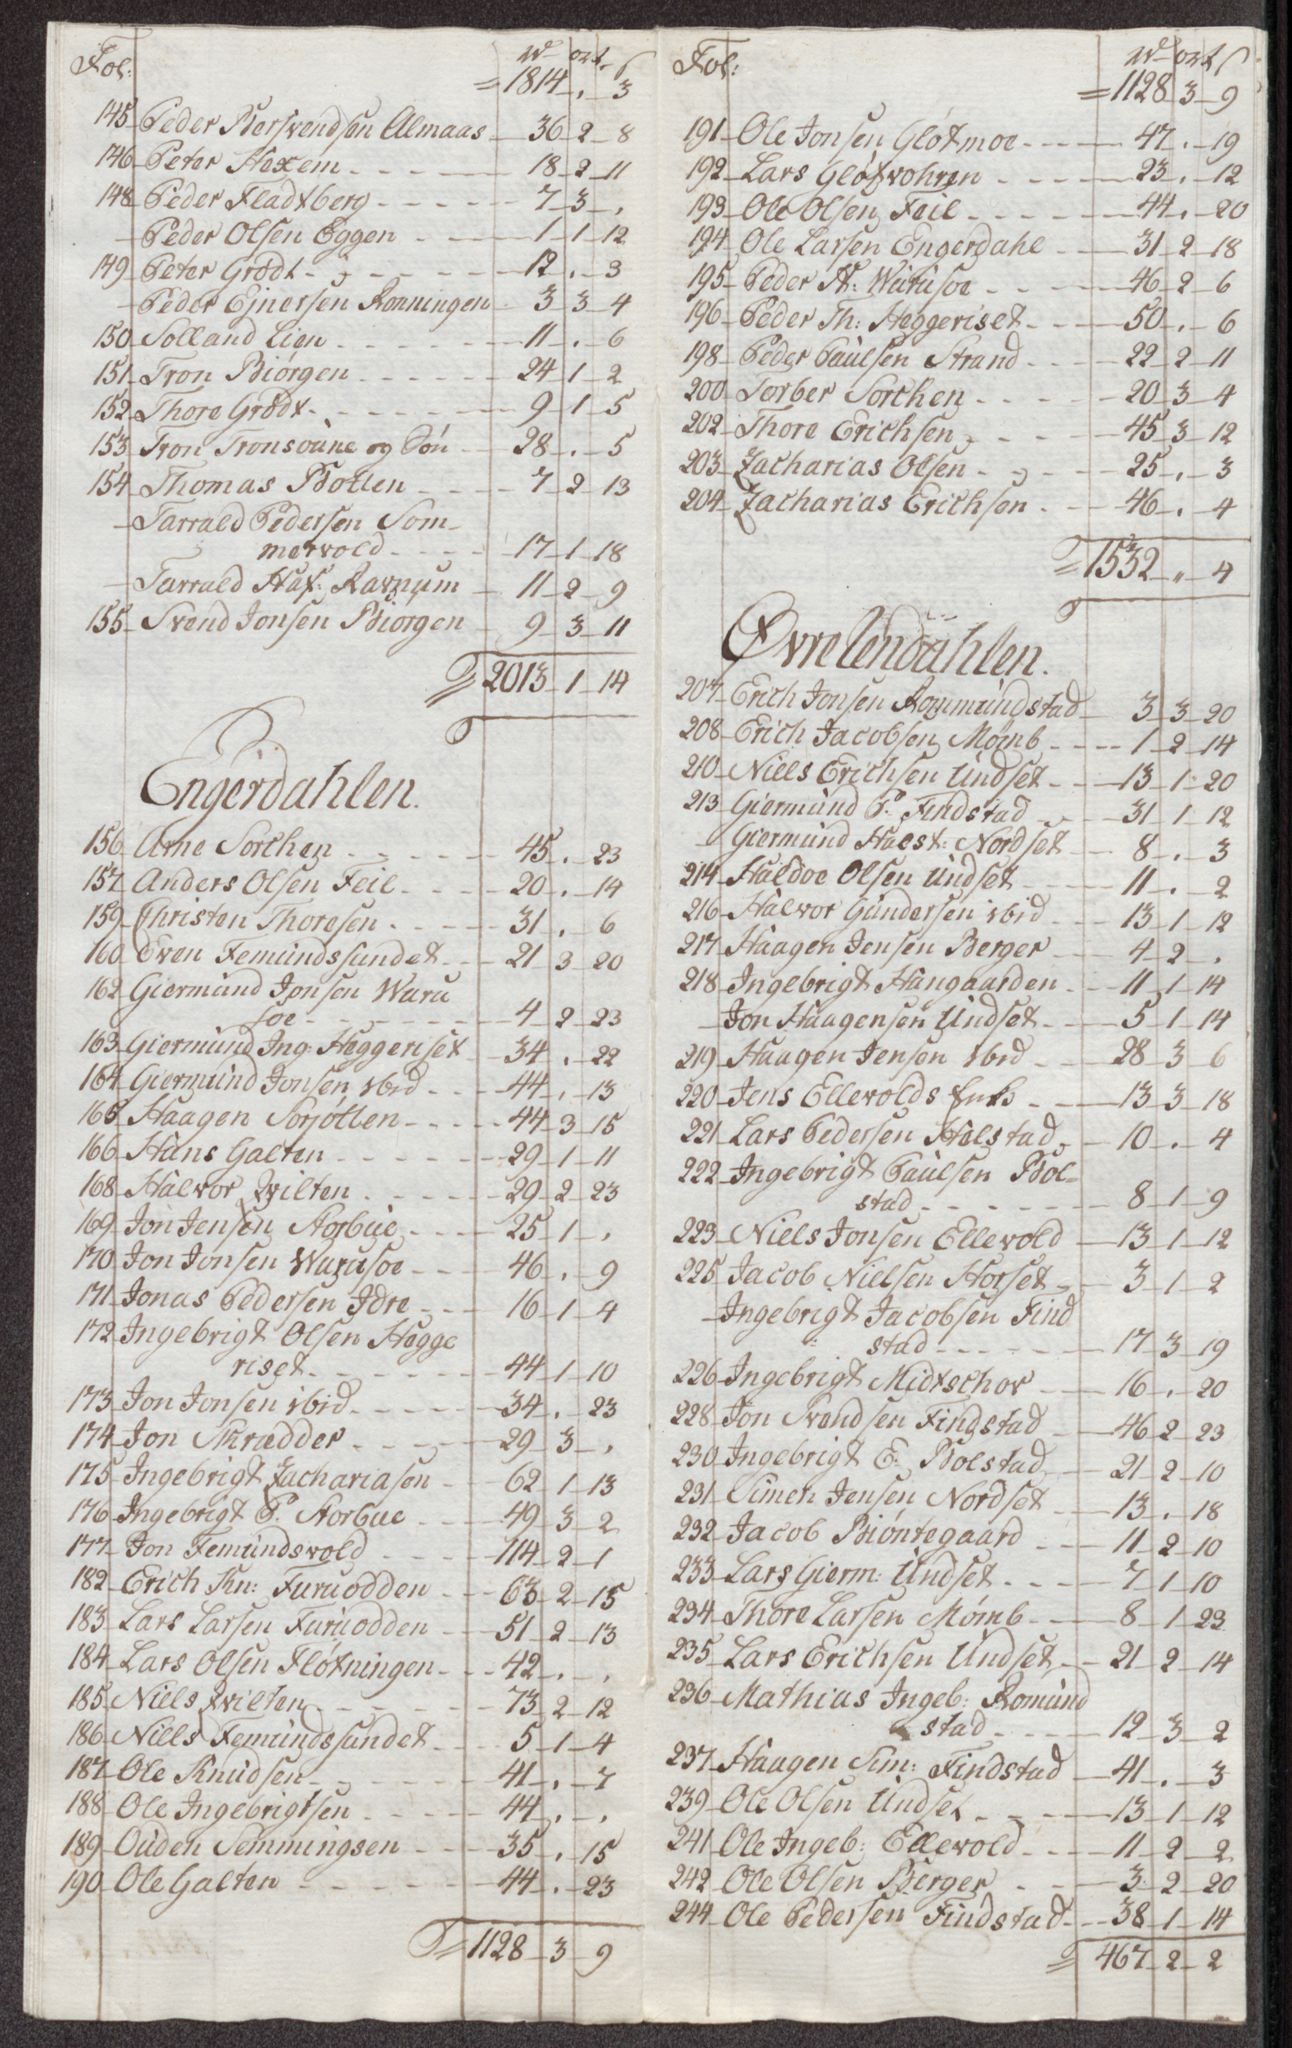 Fol: rd ort. s
= 1814 . 3
145 Peder Bersvendsen Almaas 36 2 8
146 Peter Hexem 18 2 11
148 Peder Fladtberg 7 3 .
- Peder Olsen Eggen 1 1 12
149 Peter Grødt 12 . 3
- Peder Ejnersen Rønningen 3 3 4
150 Solland Lien 11 . 6
151 Tron Biørgen 24 1 2
152 Thore Grødt 9 1 5
153 Tron Tronsvüne og Søn 28 . 5
154 Thomas Botten 7 2 13
- Tarrald Pedersen Som-
mervold 17 1 18
- Tarrald Haf: Ravnum 11 2 9
155 Svend Jonsen Biørgen 9 3 11
2013 1 14
Engerdahlen.
156 Arne Sorchen 45 . 23
157 Anders Olsen Feil 20 . 14
159 Christen Thoresen 31 . 6
160 Even Femündssundet 21 3 20
162 Giermünd Jonsen Wuru
soe 4 2 23
163 Giermünd Ing: Heggeriset 34 . 22
164 Giermünd Jonsen ibid 44 . 13
165 Haagen Sorjøtten 44 3 15
166 Hans Galten 29 1 11
168 Halvor Qvilten 29 2 23
169 Jon Jensen Størbue 25 1 .
170 Jon Jonsen Wurusoe 46 . 9
171 Jonas Pedersen Idre 16 1 4
172 Ingebrigt Olsen Hegge
riset 44 1 10
173 Jon Jonsen ibid 34 . 23
174 Jon Skrædder 29 3 .
175 Ingebrigt Zachariasen 62 1 13
176 Ingebrigt P. Storbue 49 3 2
177 Jon Femündsvold 114 2 1
182 Erich Kn: Furuodden 63 2 15
183 Lars Larsen Furüodden 51 2 13
184 Lars Olsen Fløtningen 42 . .
185 Niels Qvilten 73 2 12
186 Niels Femündssundet 5 1 4
187 Ole Knüdsen 41 . 7
188 Ole Ingebrigtsen 44 . .
189 Ouden Semmingsen 35 . 15
190 Ole Galten 44 . 23
1128 3 9
Fol: rd ort s
= 1128 3 9
191 Ole Jonsen Gløtmoe 47 . 19
192 Lars Gløtvohren 23 . 12
193 Ole Olsen Feil 44 . 20
194 Ole Larsen Engerdahl 31 2 18
195 Peder N: Würüsoe 46 2 6
196 Peder Th: Heggeriset 50 . 6
198 Peder Paulsen Strand 22 2 11
200 Torber Sorchen 20 3 4
202 Thore Erichsen 45 3 12
203 Zacharias Olsen 25 . 3
204 Zacharias Erichsen 46 . 4
1532 " 4
Øvre Rendahlen.
207 Erich Jonsen Rommündstad 3 3 20
208 Erich Jacobsen Mømb 1 2 14
210 Niels Erichsen Undset 13 1 20
213 Giermünd P. Findstad 31 1 12
- Giermünd Halst: Nordset 8 . 3
214 Haldoe Olsen Undset 11 . 2
216 Halvor Gundersen ibid 13 1 12
217 Haagen Jensen Berger 4 2 .
218 Ingebrigt Haugaarden 11 1 14
- Jon Haagensen Undset 5 1 14
219 Haagen Jensen ibid 28 3 6
220 Jens Ellevolds Enke 13 3 18
221 Lars Pedersen Holstad 10 . 4
222 Ingebrigt Paulsen Bol-
stad 8 1 9
223 Niels Jonsen Ellevold 13 1 12
225 Jacob Nielsen Horset 3 1 2
- Ingebrigt Jacobsen Find
stad 17 3 19
226 Ingebrigt Midtschov 16 . 20
228 Jon Svendsen Findstad 46 2 23
230 Ingebrigt E: Bolstad 21 2 10
231 Simen Jensen Nordset 13 . 18
232 Jacob Biøntegaard 11 2 10
233 Lars Gierm: Undset 7 1 10
234 Thore Larsen Mømb 8 1 23
235 Lars Erichsen Undset 21 2 14
236 Mathias Ingeb: Romünd
stad 12 3 2
237 Haagen Sim: Findstad 41 . 3
239 Ole Olsen Undset 13 1 12
241 Ole Ingeb: Ellevold 11 2 2
242 Ole Olsen Berger 3 2 20
244 Ole Pedersen Findstad 38 1 14
467 2 2